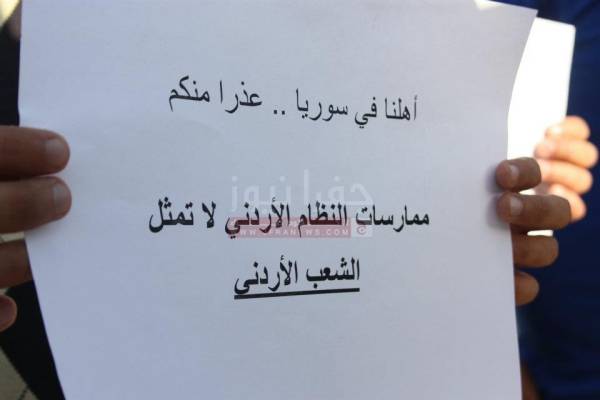 أهلنا في سوريا .. عذرا منكم
جفرا نيوز
ممارسات النظام الأردني لا تمثل
WWW.JFRANEWS.COM
الشعب الأردني